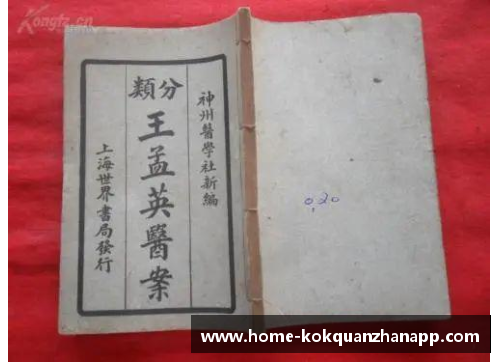 Kongfz.cn
神州醫學社新編
分類
王孟英醫案
上海世界書局發行
0.20
www.home-kokquanzhanapp.com